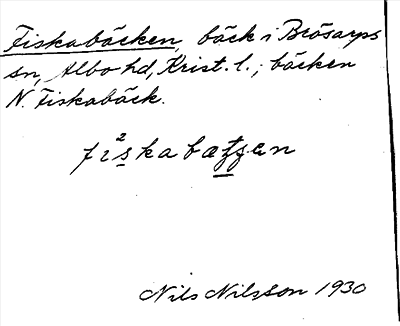 Fiskabäcken, bäck i Brösarps
sn, Albo hd, Krist. l.; bäcken
N. Fiskabäck.
Nils Nilsson 1930